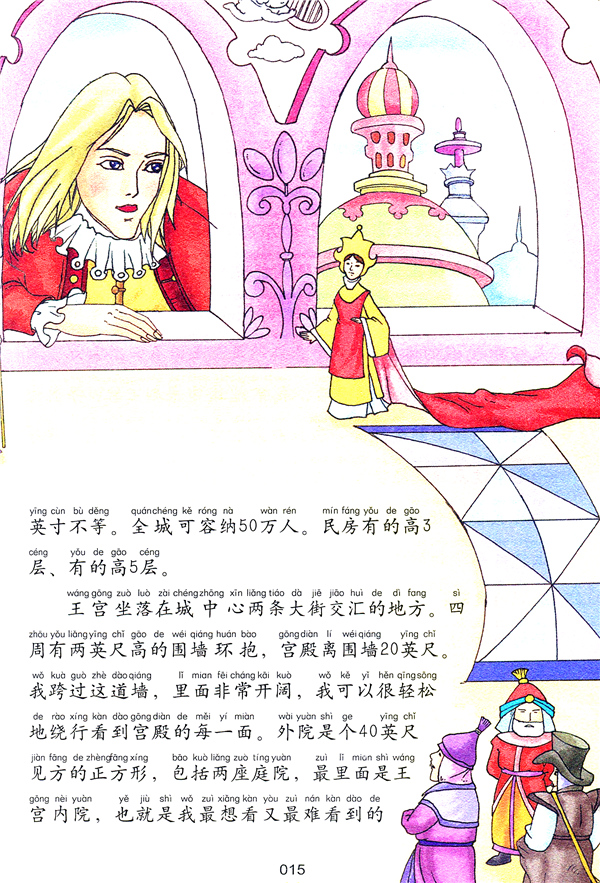 yīng cùn bù děng quánchéng kě róng nà wàn rén mín fáng yǒu de gāo
英寸不等。全城可容纳50万人。民房有的高3
céng yǒu de gāo céng
层、有的高5层。
wáng gōng zuò luò zài chéng zhōng xīn liǎng tiáo dà jiē jiāo huì de dì fang sì
王宫坐落在城中心两条大街交汇的地方。四
zhōu yǒu liǎng yīng chǐ gāo de wéi qiáng huán bào gōng diàn lí wéi qiáng yīng chǐ
周有两英尺高的围墙环抱，宫殿离围墙20英尺。
wǒ kuà guò zhè dào qiáng lǐ mian fēi cháng kāi kuò wǒ kě yǐ hěn qīng sōng
我跨过这道墙，里面非常开阔，我可以很轻松
de rào xíng kàn dào gōng diàn de měi yí miàn wài yuàn shì ge yīng chǐ
地绕行看到宫殿的每一面。外院是个40英尺
jiàn fāng de zhèng fāng xíng bāo kuò liǎng zuò tíng yuàn zuì lǐ mian shì wáng
见方的正方形，包括两座庭院，最里面是王
gōng nèi yuàn yě jiù shì wǒ zuì xiǎng kàn yòu zuì nán kàn dào de
宫内院，也就是我最想看又最难看到的
015